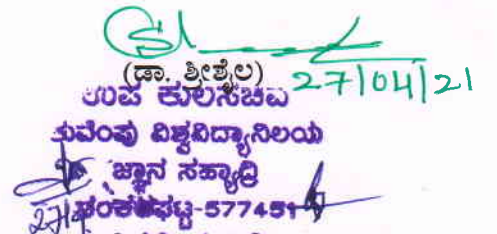 (ಡಾ. ಶ್ರೀಶೈಲ) 27/04/21
ಉಪ ಕುಲಸಚಿವ
ಕುವೆಂಪು ವಿಶ್ವವಿದ್ಯಾನಿಲಯ
ಜ್ಞಾನ ಸಹ್ಯಾದ್ರಿ
ಶಂಕರಘಟ್ಟ-577451
27/4